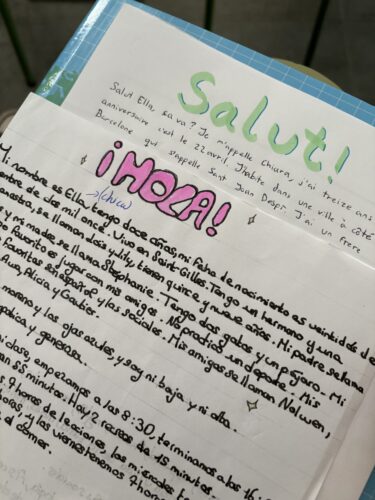 Salut!
Salut Ella, sa va? Je m'appelle Chiara, j'ai treize ans
anniversaire c'est le 22 avril. J'habite dans une ville à côté
Barcelone qui s'appelle Sant Joan Despí. J'ai un frère
¡HOLA!
chica
Mi nombre es Ella, tengo doce años, mi fecha de nacimiento es veintidós de
de dos mil once. Vivo en Saint Gilles. Tengo un hermano y una
se llaman y Lily, tienen quince y nueve años. Mi padre se llama
y mi madre se llama Stephanie. Tengo dos gatos y un pájaro. Mi
favorito es jugar con mis amigos. No practico un deporte. Mis
favoritas son español y las sociales. Mis amigos se llaman Nolwen,
Ava, Alicia y
moreno y los ojos azules, y soy ni baja y ni alta.
y generosa.
clase, empezamos a las 8:30 terminamos a las 16
55 minuto. Hay 2 recreos de 15 minutos
horas de lecciones, los miercoles
y los viernes tenemos 7 horas